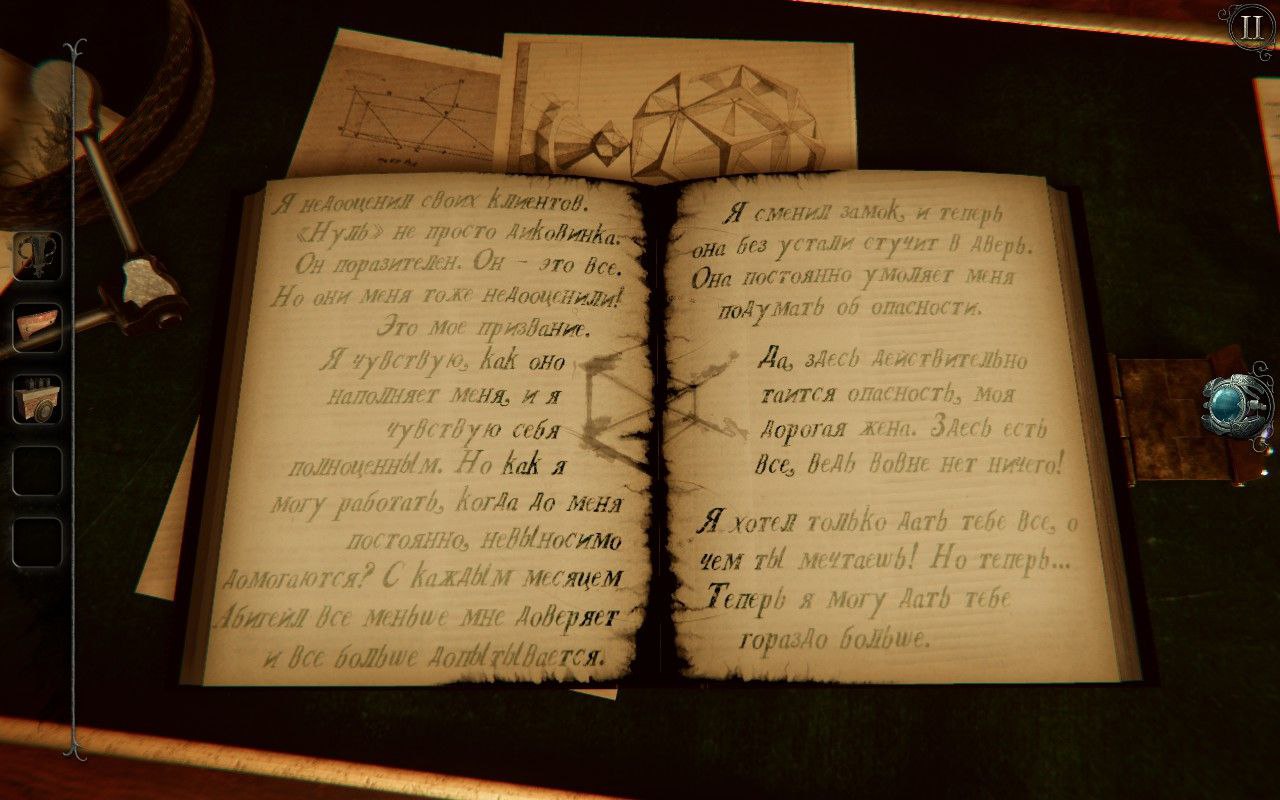 Я недооценил своих клиентов.
«Нуль» не просто диковинка.
Он поразителен. Он – это все.
Но они меня тоже недооценили!
Это мое призвание.
Я чувствую, как оно
наполняет меня, и я
чувствую себя
полноценным. Но как я
могу работать, когда до меня
постоянно, невыносимо
домогаются? С каждым месяцем
Абигейл все меньше мне доверяет
и все больше допытывается.
Я сменил замок, и теперь
она без устали стучит в дверь.
Она постоянно умоляет меня
подумать об опасности.
Да, здесь действительно
таится опасность, моя
дорогая жена. Здесь есть
все, ведь вовне нет ничего!
Я хотел только дать тебе все, о
чем ты мечтаешь! Но теперь...
Теперь я могу дать тебе
гораздо больше.
II